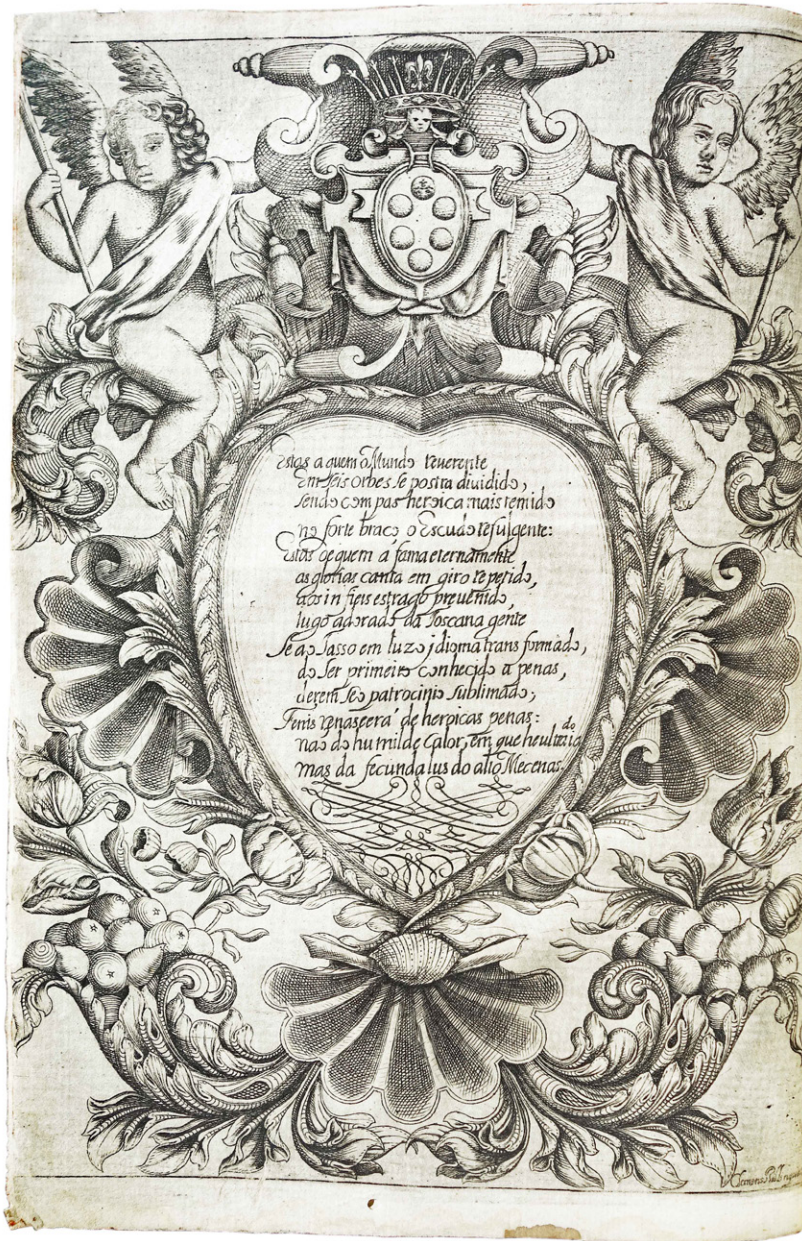 Estas a quem o Mundo reverente
em seis orbes se postra diuidido,
sendo com pas heroica mais temido
no forte braço o Escudo refulgente:
Estas de quem a fama eternamente
as glorias canta em giro repetido,
aos in fieis estrago preuenido,
jugo adorado da Toscana gente
Se ao Tasso em luzo idioma trans formado,
do Ser primeiro conhecido a penas,
derem seo patrocinio sublimado;
Fenis renaseerá de heroicas penas:
nao do humilde Calor, em que he ultimado
mas da fecunda lus do alto Mecenas.
Clemens